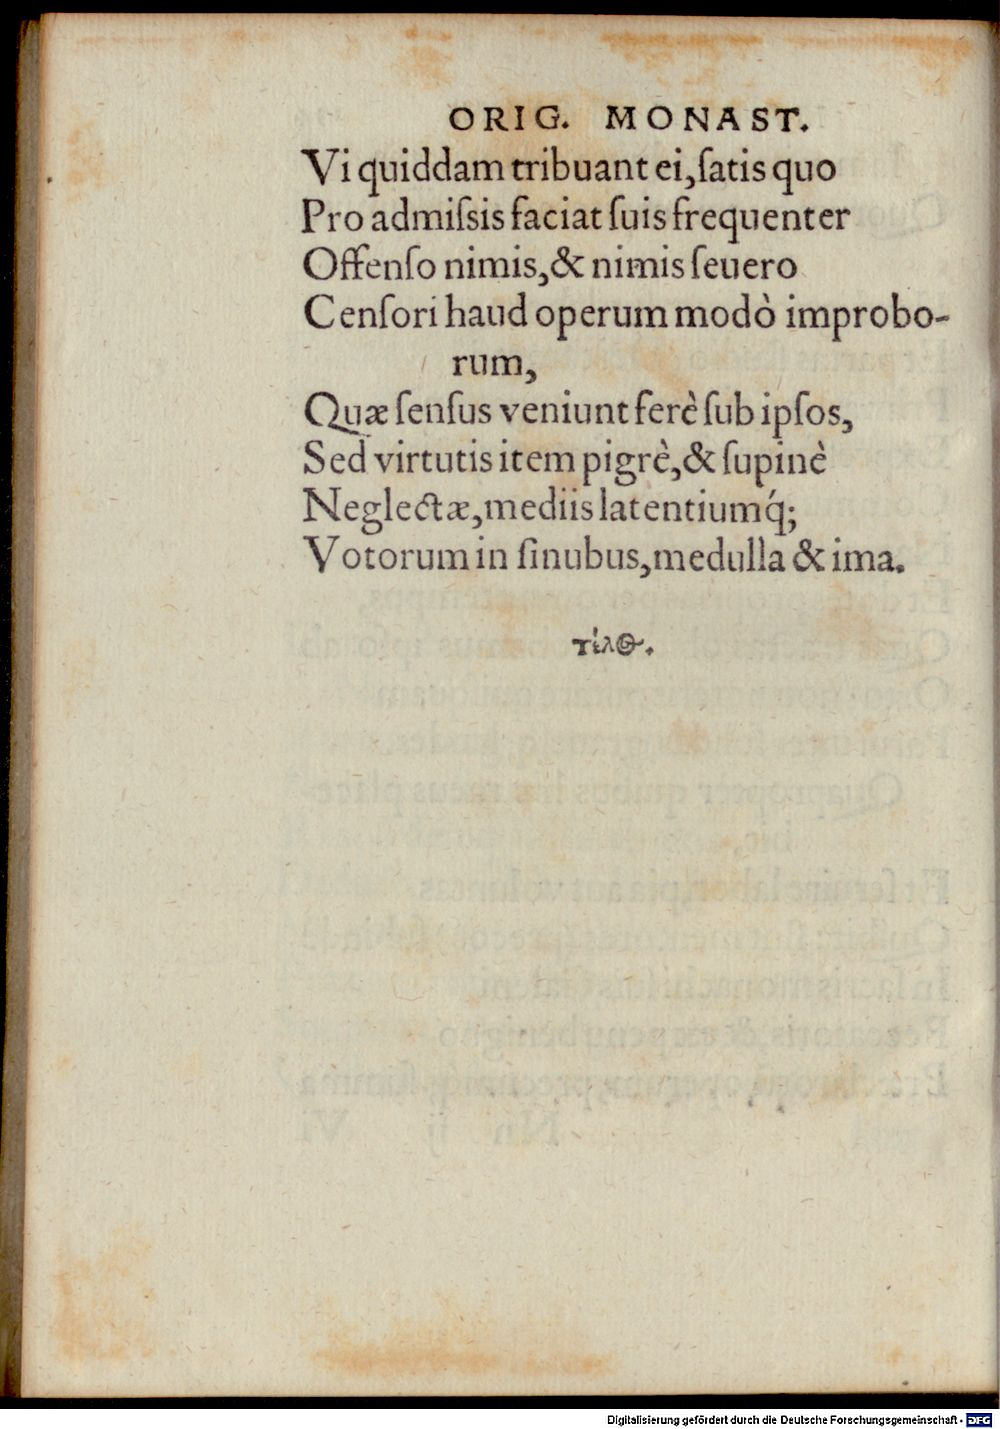 ORIG. MONAST.
Vi quiddam tribuant ei, ſatis quo
Pro admiſsis faciat ſuis frequenter
Offenſo nimis, & nimis ſeuero
Cenſori haud operum modò improbo-
rum,
Quæ ſenſus veniunt ferè ſub ipſos,
Sed virtutis item pigrè, & ſupinè
Neglectæ, mediis latentiumq́;
Votorum in ſinubus, medulla & ima.
Digitalisierung gefördert durch die Deutsche Forschungsgemeinschaft - DFG